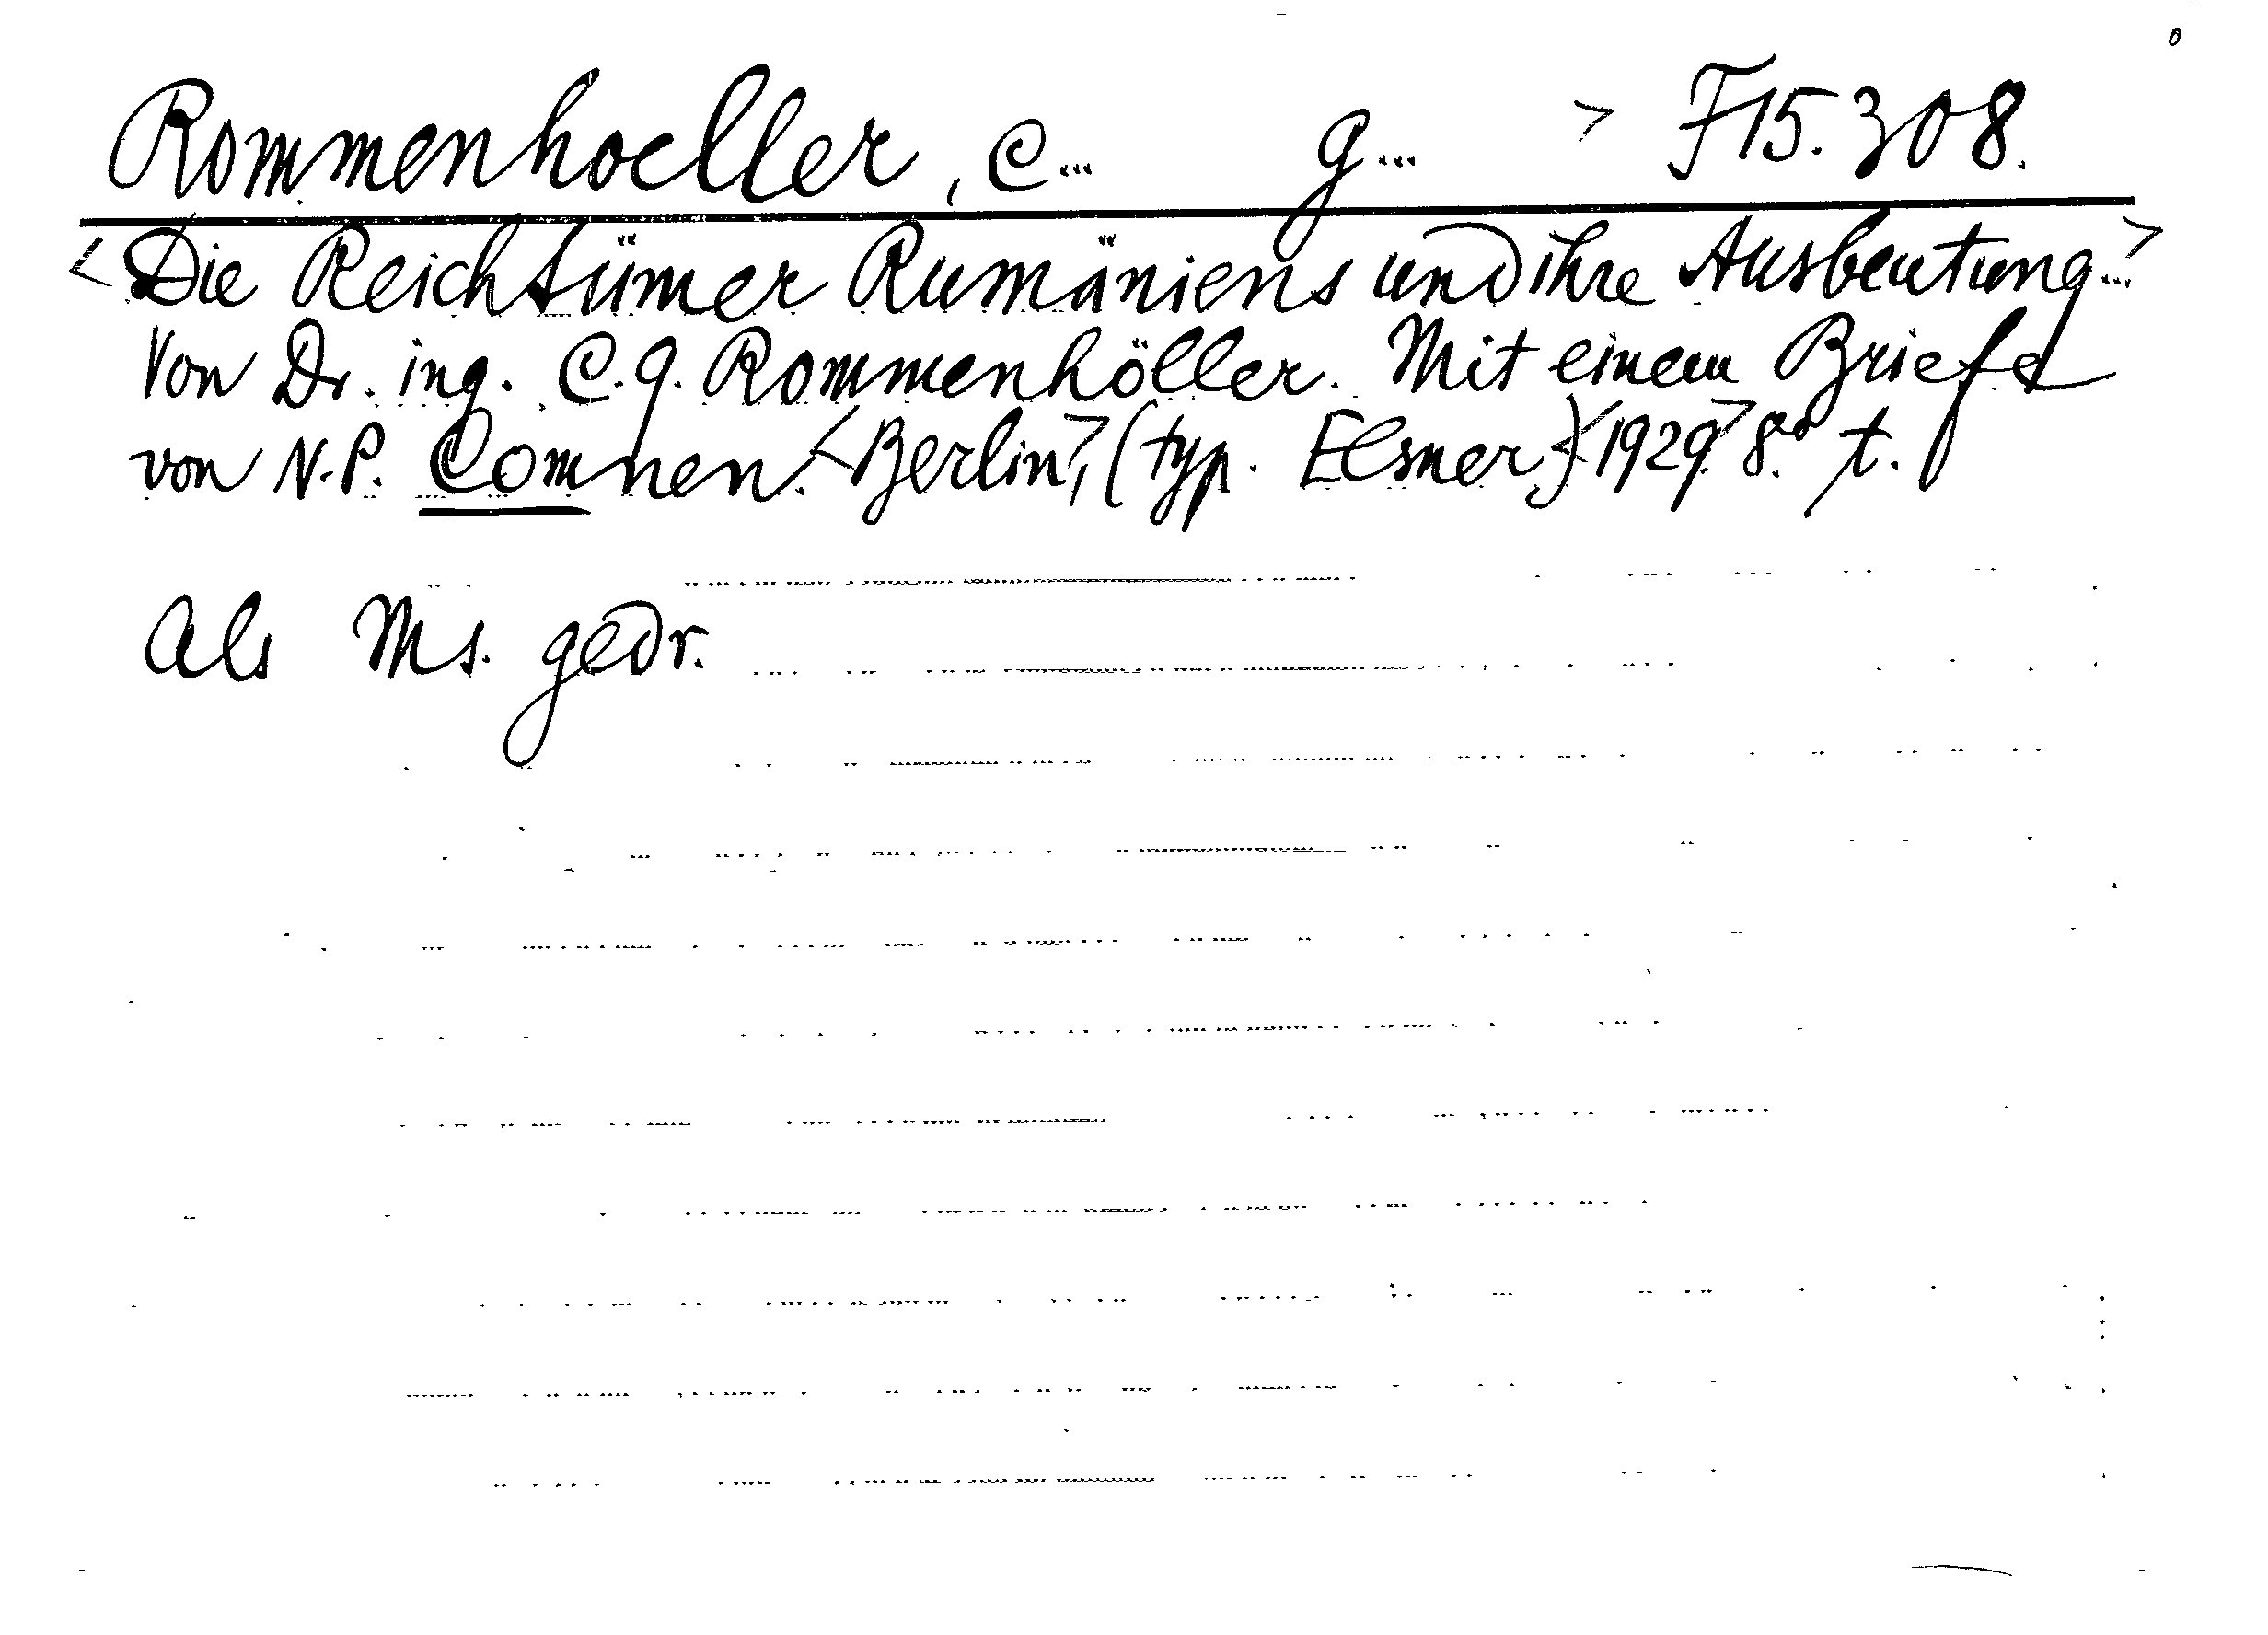 Rommenhoeller, C... G... > F 15.308.
<Die Reichtümer Rumäniens und ihre Ausbeutung...>
Von Dr. ing. C.G. Rommenhöller. Mit einem Briefe
von N.P. Comnen. <Berlin>, (typ. Elsner) <1929> 8.° t.
Als Ms. gedr.